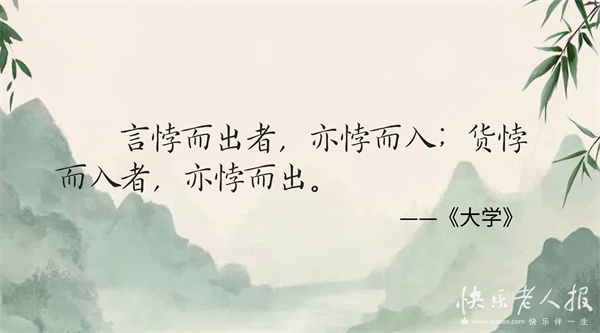 言悖而出者，亦悖而入；货悖
而入者，亦悖而出。
——《大学》
快乐老人报
www.laoren.com 快乐伴一生